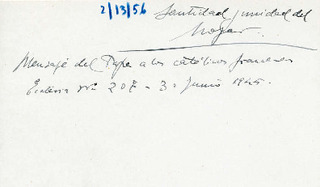 2/13/56
Santidad y unidad del
hogar.
Mensaje del Papa a los católicos franceses
Ecclesia nº 207 - 3. Junio 1945.